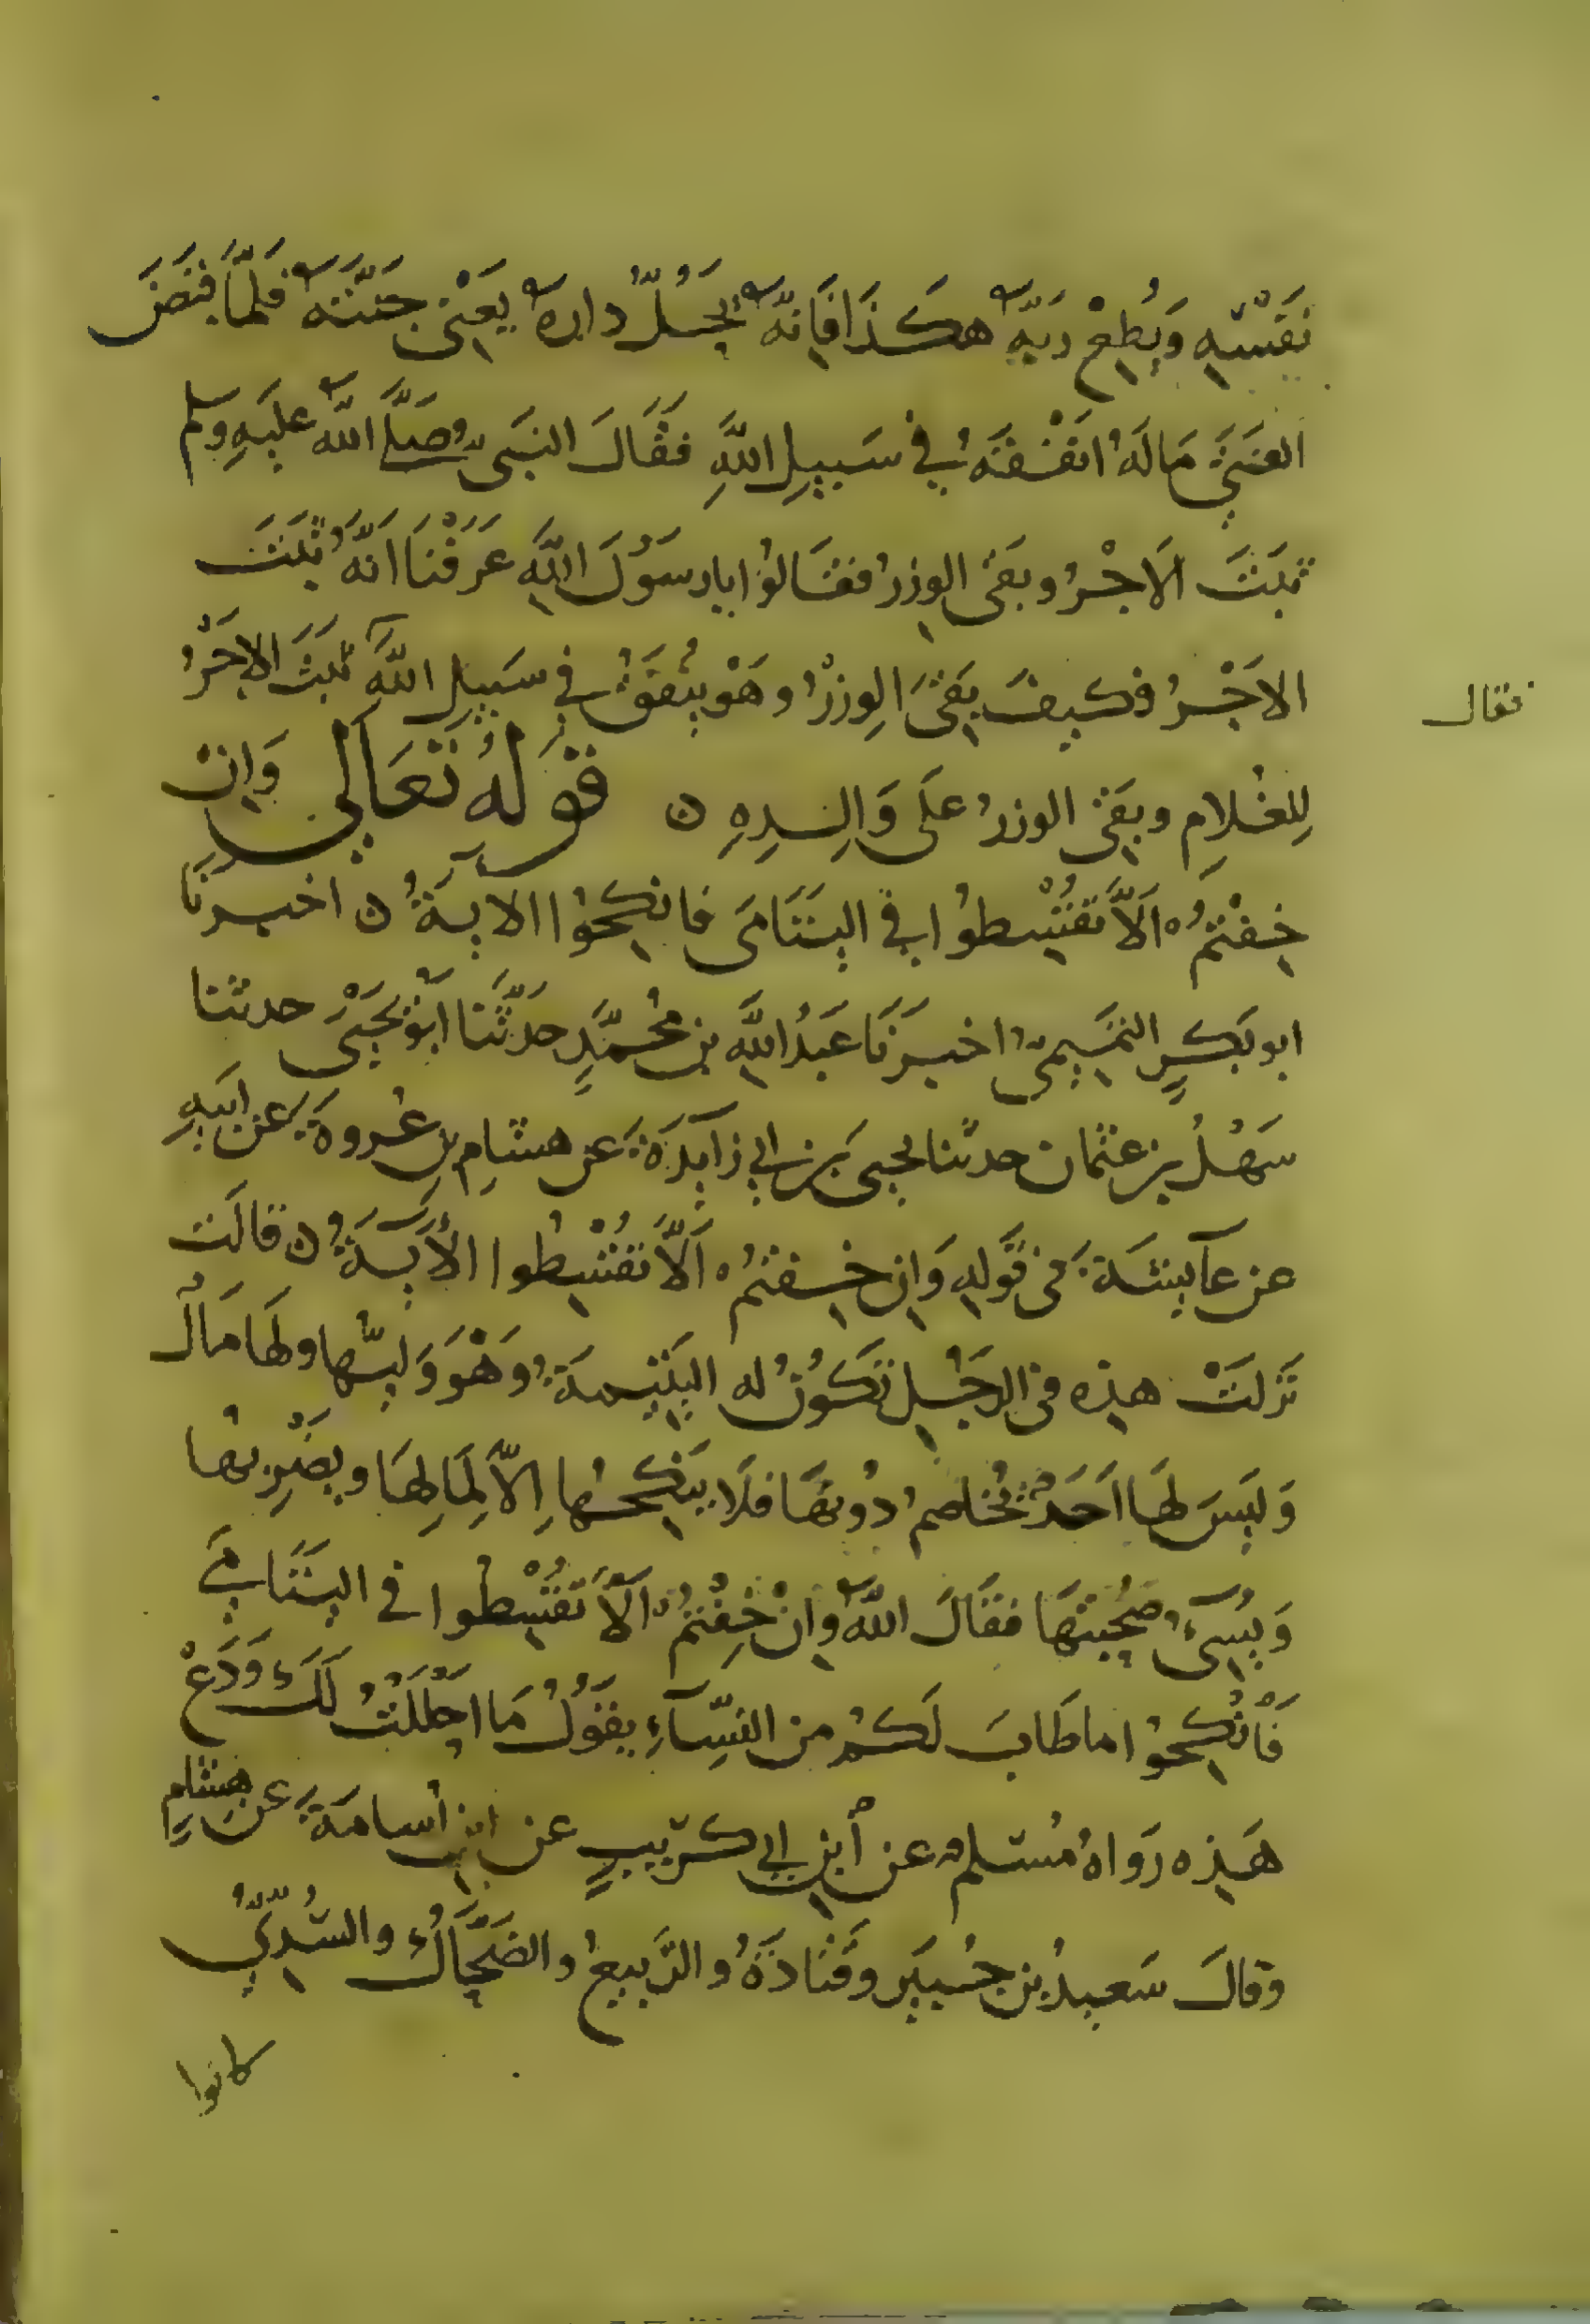 نَفْسِهِ وَيُطِعْ رَبَّهُ هكَذَا فَإِنَّهُ يَحُلُّ دارهُ يَعْنِى جَنَّتَهُ فَلَمَّا قبَضَ
الفَتَى مَالَهُ انفَقَهُ فِي سَبِيلِ اللَّهِ فقَالَ النبَىُّ صَلَّى اللَّهُ عليَهِ وسلم
ثبَتَ الاَجْرُ وبقَى الوِزرُ فقَالوُا يا رسَوُلَ اللَّهِ عَرَفْنَا اَنَّهُ ثبَتَ
الاَجْرُ فكيفَ بَقىَ الوِزْرُ وهَوْ ينُفقُ فِي سَبِيلِ اللَّهِ ثبَتَ الاجَرُ
فقال
لِلغُلامِ وبقَى الوزرُ عَلَى وَالِدِهِ ه قوَلهُ تعَالَى وَاِن
خِفْتمُ اَلاَّ تُقْسِطوُا فِي اليَتَامَى فانكِحوُا الايةُ ه اخبرنَا
ابو بَكرٍ التمَيمِىُّ اخبرَنَا عَبدُ اللَّهِ بن محُمَّدٍ حَدَّثَنا اَبوُ يَحيَىْ حدثنا
سَهْلُ بن عثمان حدثنا يحيى بَن ابي زاَيدَةَ عن هشامِ بنِ عُروةَ عن اَبيَهِ
عن عآيشَةَ فى قوَلهِ وَاِن خِفتمُ اَلاَّ تُقْسِطُوا الأَيَةُ ه قالَت
نزَلَتْ هذِه فى الرجُلِ تَكوُنُ له اليَتِيمةُ وَهْوَ وَليُّها ولَهَا مَالٌ
وَليَسَ لهَا اَحَدٌ يُخاصمُ دُونهَا فلَا يَنكحُهاِ الاَّ لِمَالِهَا وَيضُرِبهُا
وَيسُىَٓءُ صُحْبَتهَا فقَالَ اللَّهُ وِانْ خِفْتمُ الاَّ تقُسِطُوا في اليَتَامَى
فَانْكِحوُا ما طَابَ لَكمُ من النسِّآءِ يقَوُلُ مَا احْلَلْتُ لَكَ وَدَعْ
هَذِه رَواهُ مُسلمٌ عن أبنِ ابي كرَيبٍ عن ابِى أسامةَ عن هشامٍ
وقالَ سَعيدُ بن جُبَيرٍ وقَتَادَةُ والرَّبيعُ والضَحَّاكُ والسُّدِّيُّ
كانوا